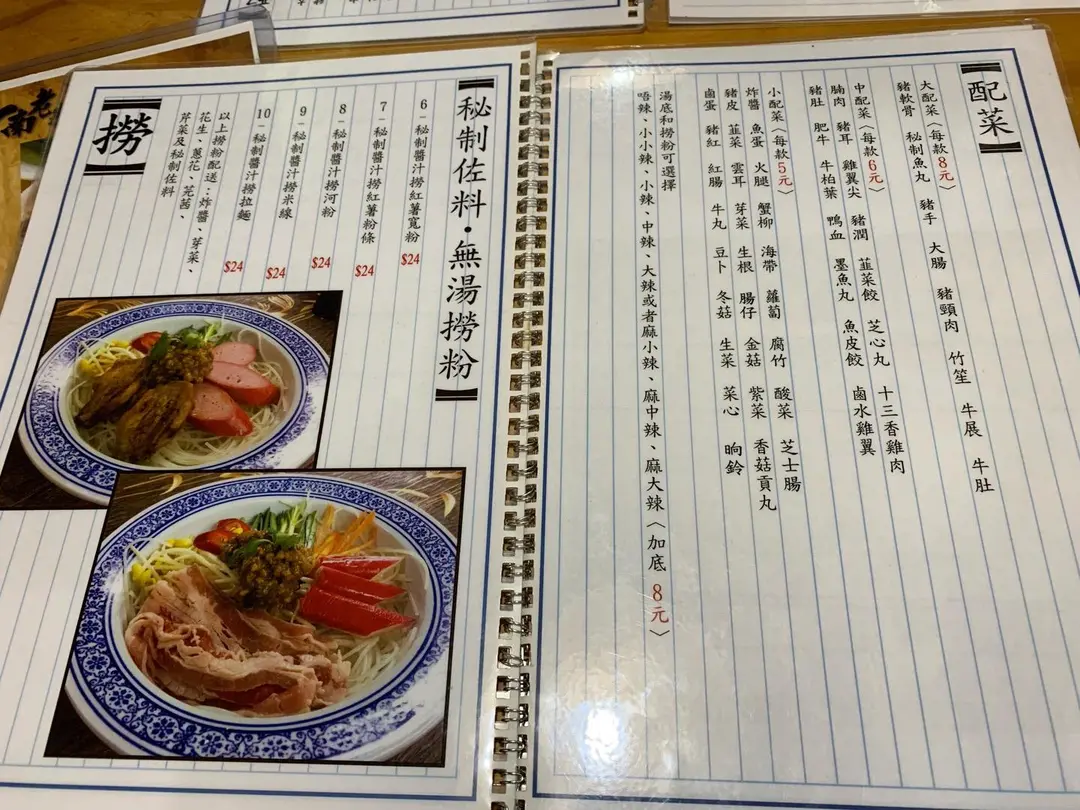 配菜
大配菜〈每款8元〉
豬軟骨 秘制魚丸 豬手 大腸 豬頸肉 竹笙 牛展 牛肚
中配菜〈每款6元〉
腩肉 豬耳 雞翼尖 豬潤 韮菜餃 芝心丸 十三香雞肉
豬肚 肥牛 牛柏葉 鴨血 墨魚丸 魚皮餃 鹵水雞翼
小配菜〈每款5元〉
炸醬 魚蛋 火腿 蟹柳 海帶 蘿蔔 腐竹 酸菜 芝士腸
豬皮 韮菜 雲耳 芽菜 生根 腸仔 金菇 紫菜 香菇貢丸
鹵蛋 豬紅 紅腸 牛丸 豆卜 冬菇 生菜 菜心 晌鈴
湯底和撈粉可選擇
唔辣、小小辣、小辣、中辣、大辣或者麻小辣、麻中辣、麻大辣〈加底8元〉
秘制佐料·無湯撈粉
6-秘制醬汁撈紅薯寬粉 $24
7-秘制醬汁撈紅薯粉條 $24
8-秘制醬汁撈河粉 $24
9-秘制醬汁撈米線 $24
10-秘制醬汁撈拉麵 $24
以上撈粉配送:炸醬、芽菜、
花生、蔥花、芫茜、
芹菜及秘制佐料
撈